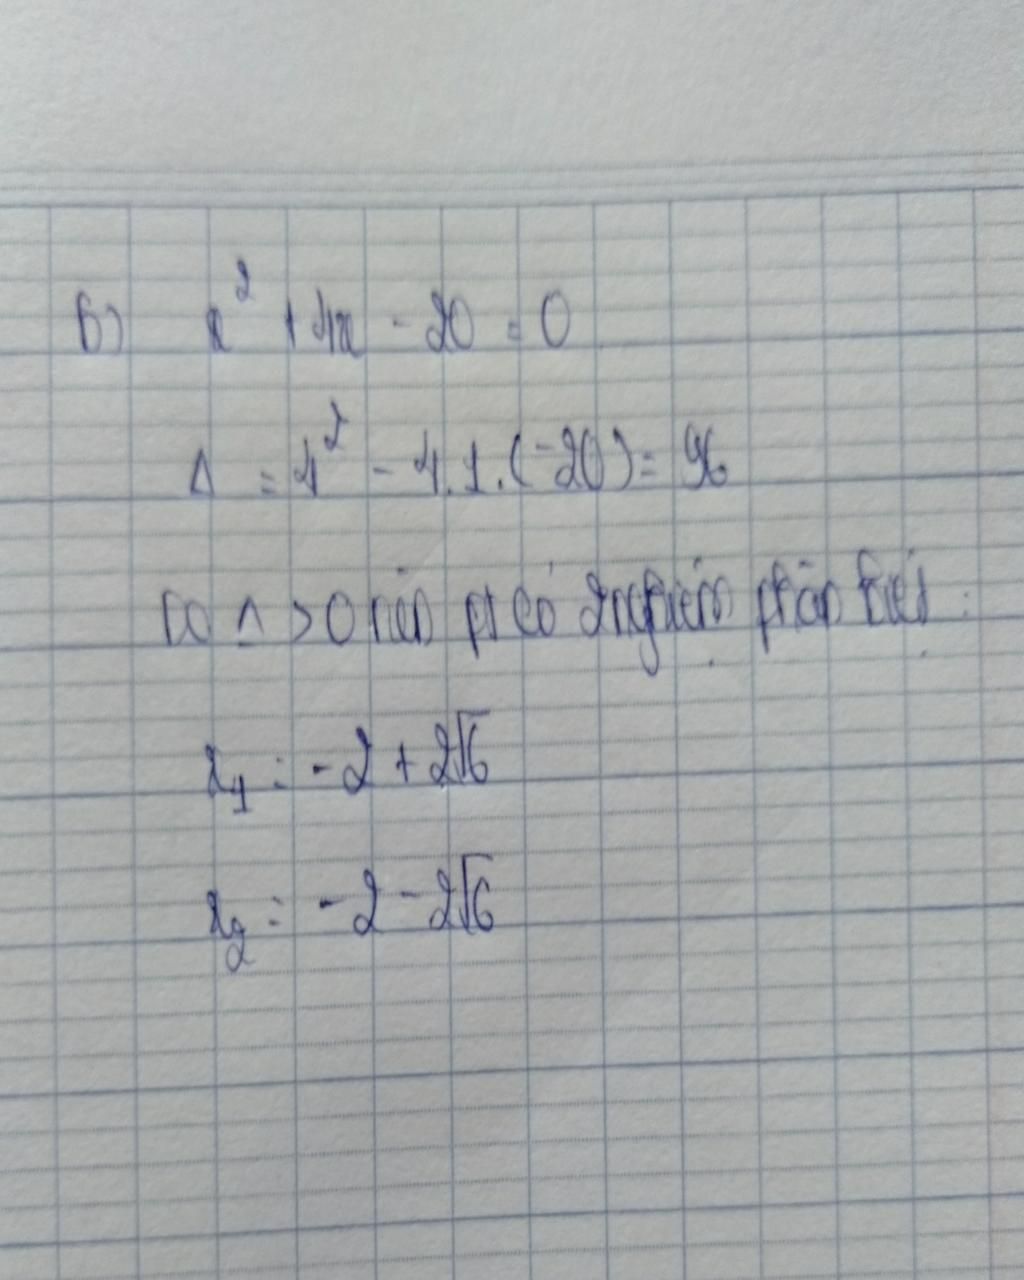 b) x² + 4x - 20 = 0
Δ = 4² - 4.1.(-20) = 96
Do Δ > 0 nên pt có 2 nghiệm phân biệt :
x₁ = -2 + 2√6
x₂ = -2 - 2√6